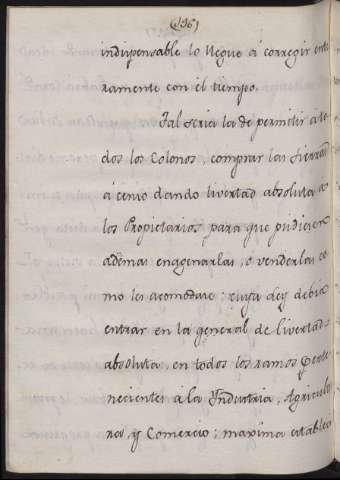 (196)
indispensable lo llegue á corregir ente
ramente con el tiempo.
Tal seria la de permitir á to
dos los Colonos, comprar las tierras
á censo dando livertad absoluta a
los Propietarios para que pudiesen
ademas enagenarlas, o venderlas co
mo les acomodase: cuya Ley debia
entrar en la general de livertad
absoluta, en todos los ramos Perte
necientes á la Yndustria, Agricultu
ra, y Comercio; maxima estableci